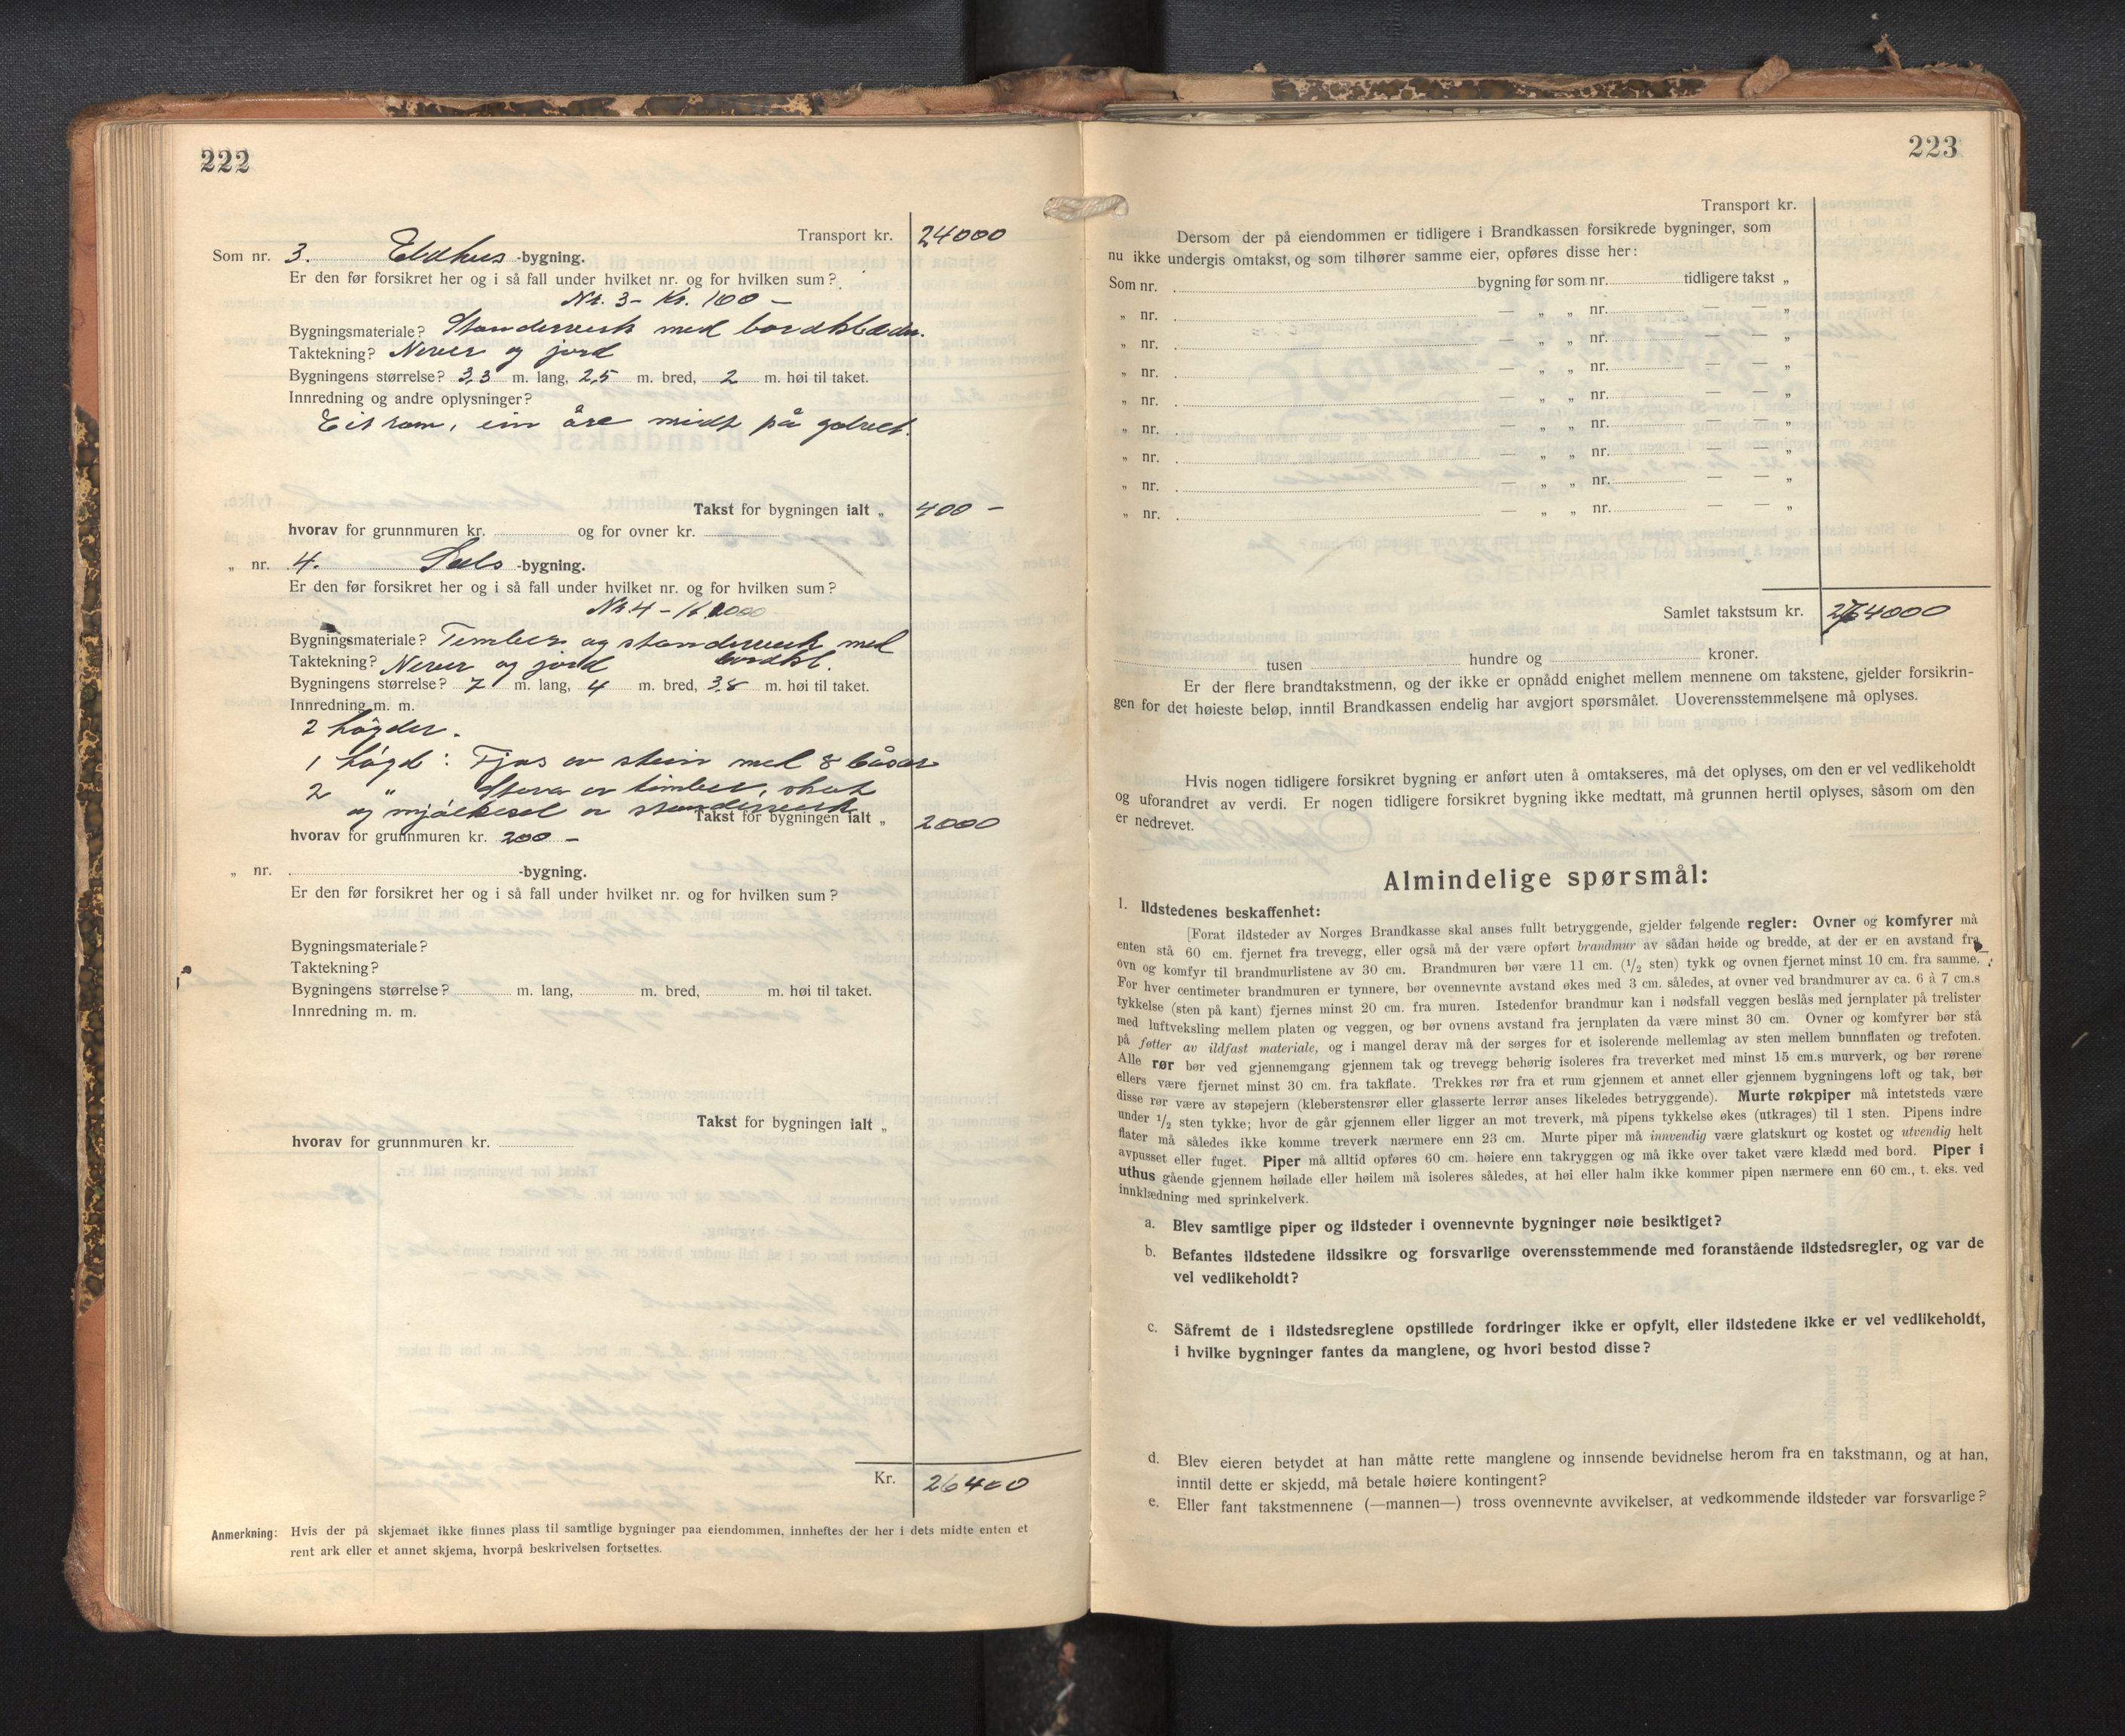 222
Transport kr. 24000
Som nr. 3. Eldhus -bygning.
Er den før forsikret her og i så fall under hvilket nr. og for hvilken sum?
Nr. 3 - Kr. 100 -
Bygningsmateriale? Standerverk med bordklædn.
Taktekning? Never og jord
Bygningens størrelse? 3,3 m. lang, 2,5 m. bred, 2 m. høi til taket.
Innredning og andre oplysninger?
Eit rom, ein åre midt på golvet.
Takst for bygningen ialt „ 400 -
hvorav for grunnmuren kr. og for ovner kr.
„ nr. 4. Sels -bygning.
Er den før forsikret her og i så fall under hvilket nr. og for hvilken sum?
Nr. 4 - 1000
Bygningsmateriale? Timber og standerverk med
bordkl.
Taktekning? Never og jord
Bygningens størrelse? 7 m. lang, 4 m. bred, 3,8 m. høi til taket.
Innredning m. m.
2 høgder.
1 høgd: Fjøs av stein med 8 båsar
2 „ Stova av timber, skot
og mjølkesel av standerverk
Takst for bygningen ialt „ 2000
hvorav for grunnmuren kr. 200 -
„ nr. -bygning.
Er den før forsikret her og i så fall under hvilket nr. og for hvilken sum?
Bygningsmateriale?
Taktekning?
Bygningens størrelse? m. lang, m. bred, m. høi til taket.
Innredning m. m.
Takst for bygningen ialt „
hvorav for grunnmuren kr.
Kr. 26400
Anmerkning: Hvis der på skjemaet ikke finnes plass til samtlige bygninger paa eiendommen, innheftes der her i dets midte enten et
rent ark eller et annet skjema, hvorpå beskrivelsen fortsettes.
223
Transport kr.
Dersom der på eiendommen er tidligere i Brandkassen forsikrede bygninger, som
nu ikke undergis omtakst, og som tilhører samme eier, opføres disse her:
Som nr. bygning før som nr. tidligere takst „
„ nr. — „ „ nr. — — „
„ nr. — „ „ nr. — — „
„ nr. — „ „ nr. — — „
„ nr. — „ „ nr. — — „
„ nr. — „ „ nr. — — „
„ nr. — „ „ nr. — — „
„ nr. — „ „ nr. — — „
„ nr. — „ „ nr. — — „
Samlet takstsum kr.
tusen hundre og kroner.
Er der flere brandtakstmenn, og der ikke er opnådd enighet mellem mennene om takstene, gjelder forsikrin-
gen for det høieste beløp, inntil Brandkassen endelig har avgjort spørsmålet. Uoverensstemmelsene må oplyses.
Hvis nogen tidligere forsikret bygning er anført uten å omtakseres, må det oplyses, om den er vel vedlikeholdt
og uforandret av verdi. Er nogen tidligere forsikret bygning ikke medtatt, må grunnen hertil oplyses, såsom om den
er nedrevet.
Almindelige spørsmål:
1. Ildstedenes beskaffenhet:
[Forat ildsteder av Norges Brandkasse skal anses fullt betryggende, gjelder følgende regler: Ovner og komfyrer må
enten stå 60 cm. fjernet fra trevegg, eller også må der være opført brandmur av sådan høide og bredde, at der er en avstand fra
ovn og komfyr til brandmurlistene av 30 cm. Brandmuren bør være 11 cm. (1/2 sten) tykk og ovnen fjernet minst 10 cm. fra samme.
For hver centimeter brandmuren er tynnere, bør ovennevnte avstand økes med 3 cm. således, at ovner ved brandmurer av ca. 6 à 7 cm.s
tykkelse (sten på kant) fjernes minst 20 cm. fra muren. Istedenfor brandmur kan i nødsfall veggen beslås med jernplater på trelister
med luftveksling mellem platen og veggen, og bør ovnens avstand fra jernplaten da være minst 30 cm. Ovner og komfyrer bør stå
på føtter av ildfast materiale, og i mangel derav må der sørges for et isolerende mellemlag av sten mellem bunnflaten og trefoten.
Alle rør bør ved gjennemgang gjennem tak og trevegg behørig isoleres fra treverket med minst 15 cm.s murverk, og bør rørene
ellers være fjernet minst 30 cm. fra takflate. Trekkes rør fra et rum gjennem et annet eller gjennem bygningens loft og tak, bør
disse rør være av støpejern (kleberstensrør eller glasserte lerrør anses likeledes betryggende). Murte røkpiper må intetsteds være
under 1/2 sten tykke; hvor de går gjennem eller ligger an mot treverk, må pipens tykkelse økes (utkrages) til 1 sten. Pipens indre
flater må således ikke komme treverk nærmere enn 23 cm. Murte piper må innvendig være glatskurt og kostet og utvendig helt
avpusset eller fuget. Piper må alltid opføres 60 cm. høiere enn takryggen og må ikke over taket være klædd med bord. Piper i
uthus gående gjennem høilade eller høilem må isoleres således, at høi eller halm ikke kommer pipen nærmere enn 60 cm., t. eks. ved
innklædning med sprinkelverk.
a. Blev samtlige piper og ildsteder i ovennevnte bygninger nøie besiktiget?
b. Befantes ildstedene ildssikre og forsvarlige overensstemmende med foranstående ildstedsregler, og var de
vel vedlikeholdt?
c. Såfremt de i ildstedsreglene opstillede fordringer ikke er opfylt, eller ildstedene ikke er vel vedlikeholdt,
i hvilke bygninger fantes da manglene, og hvori bestod disse?
d. Blev eieren betydet at han måtte rette manglene og innsende bevidnelse herom fra en takstmann, og at han,
inntil dette er skjedd, må betale høiere kontingent?
e. Eller fant takstmennene (—mannen—) tross ovennevnte avvikelser, at vedkommende ildsteder var forsvarlige?